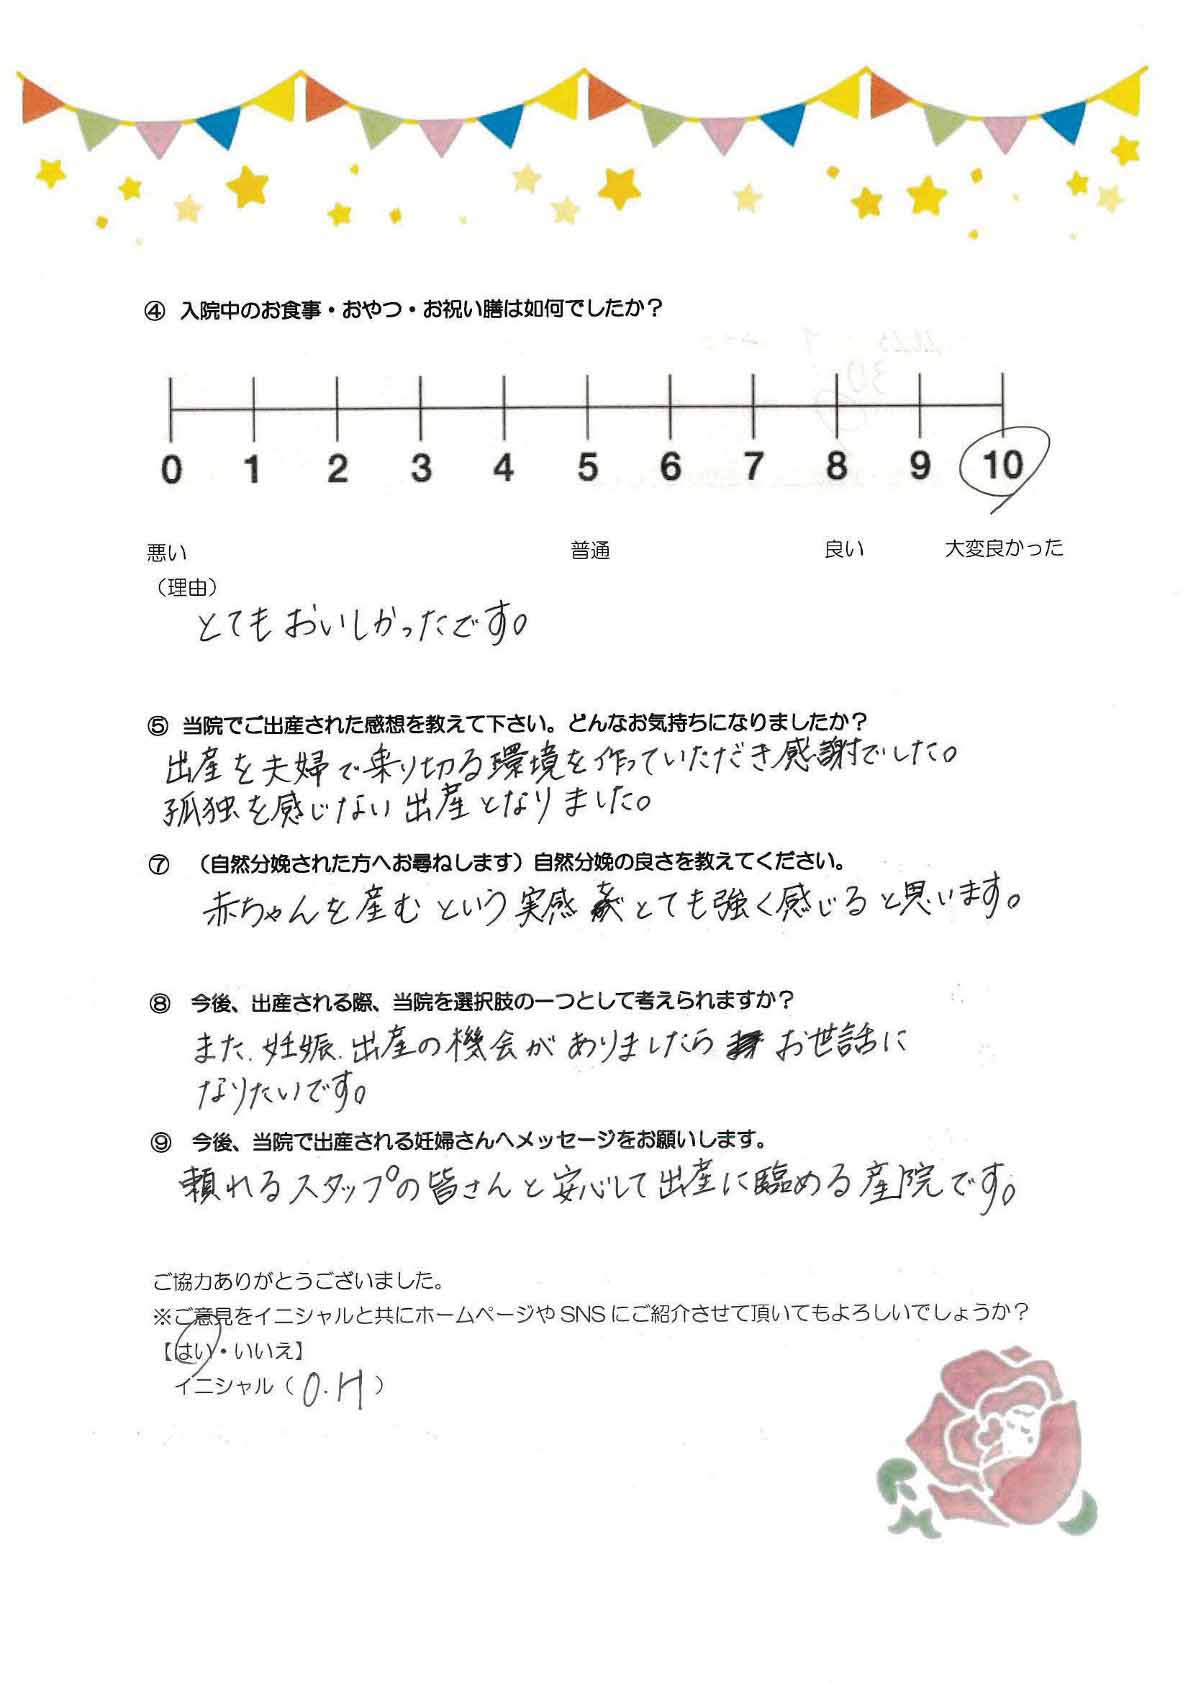 ④ 入院中のお食事・おやつ・お祝い膳は如何でしたか？
0 1 2 3 4 5 6 7 8 9 10
悪い 普通 良い 大変良かった
（理由）
とてもおいしかったです。
⑤ 当院でご出産された感想を教えて下さい。どんなお気持ちになりましたか？
出産を夫婦で乗り切る環境を作っていただき感謝でした。
孤独を感じない出産となりました。
⑦ （自然分娩された方へお尋ねします）自然分娩の良さを教えてください。
赤ちゃんを産むという実感がとても強く感じると思います。
⑧ 今後、出産される際、当院を選択肢の一つとして考えられますか？
また、妊娠、出産の機会がありましたら お世話に
なりたいです。
⑨ 今後、当院で出産される妊婦さんへメッセージをお願いします。
頼れるスタップの皆さんと安心して出産に臨める産院です。
ご協力ありがとうございました。
※ご意見をイニシャルと共にホームページやSNSにご紹介させて頂いてもよろしいでしょうか？
【はい・いいえ】
イニシャル（O.H）